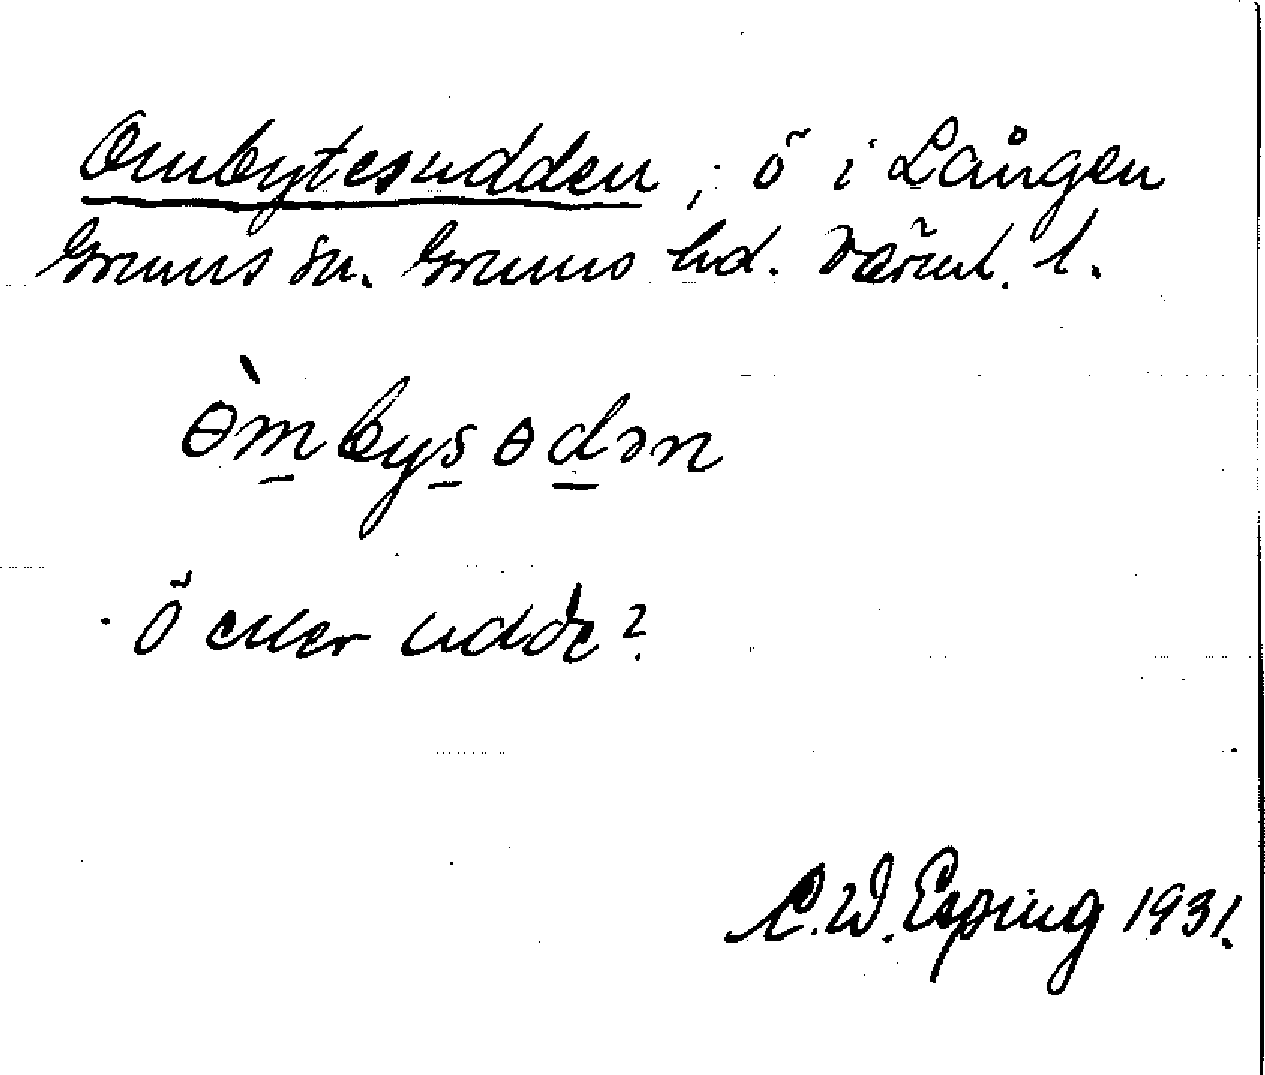 Ombytesudden, ö i Lången
Grums sn. Grums hd. Värml. l.
ɵ̀m̠bys̠ɵd̠ən
Ö eller udde?
C.W. Esping 1931.